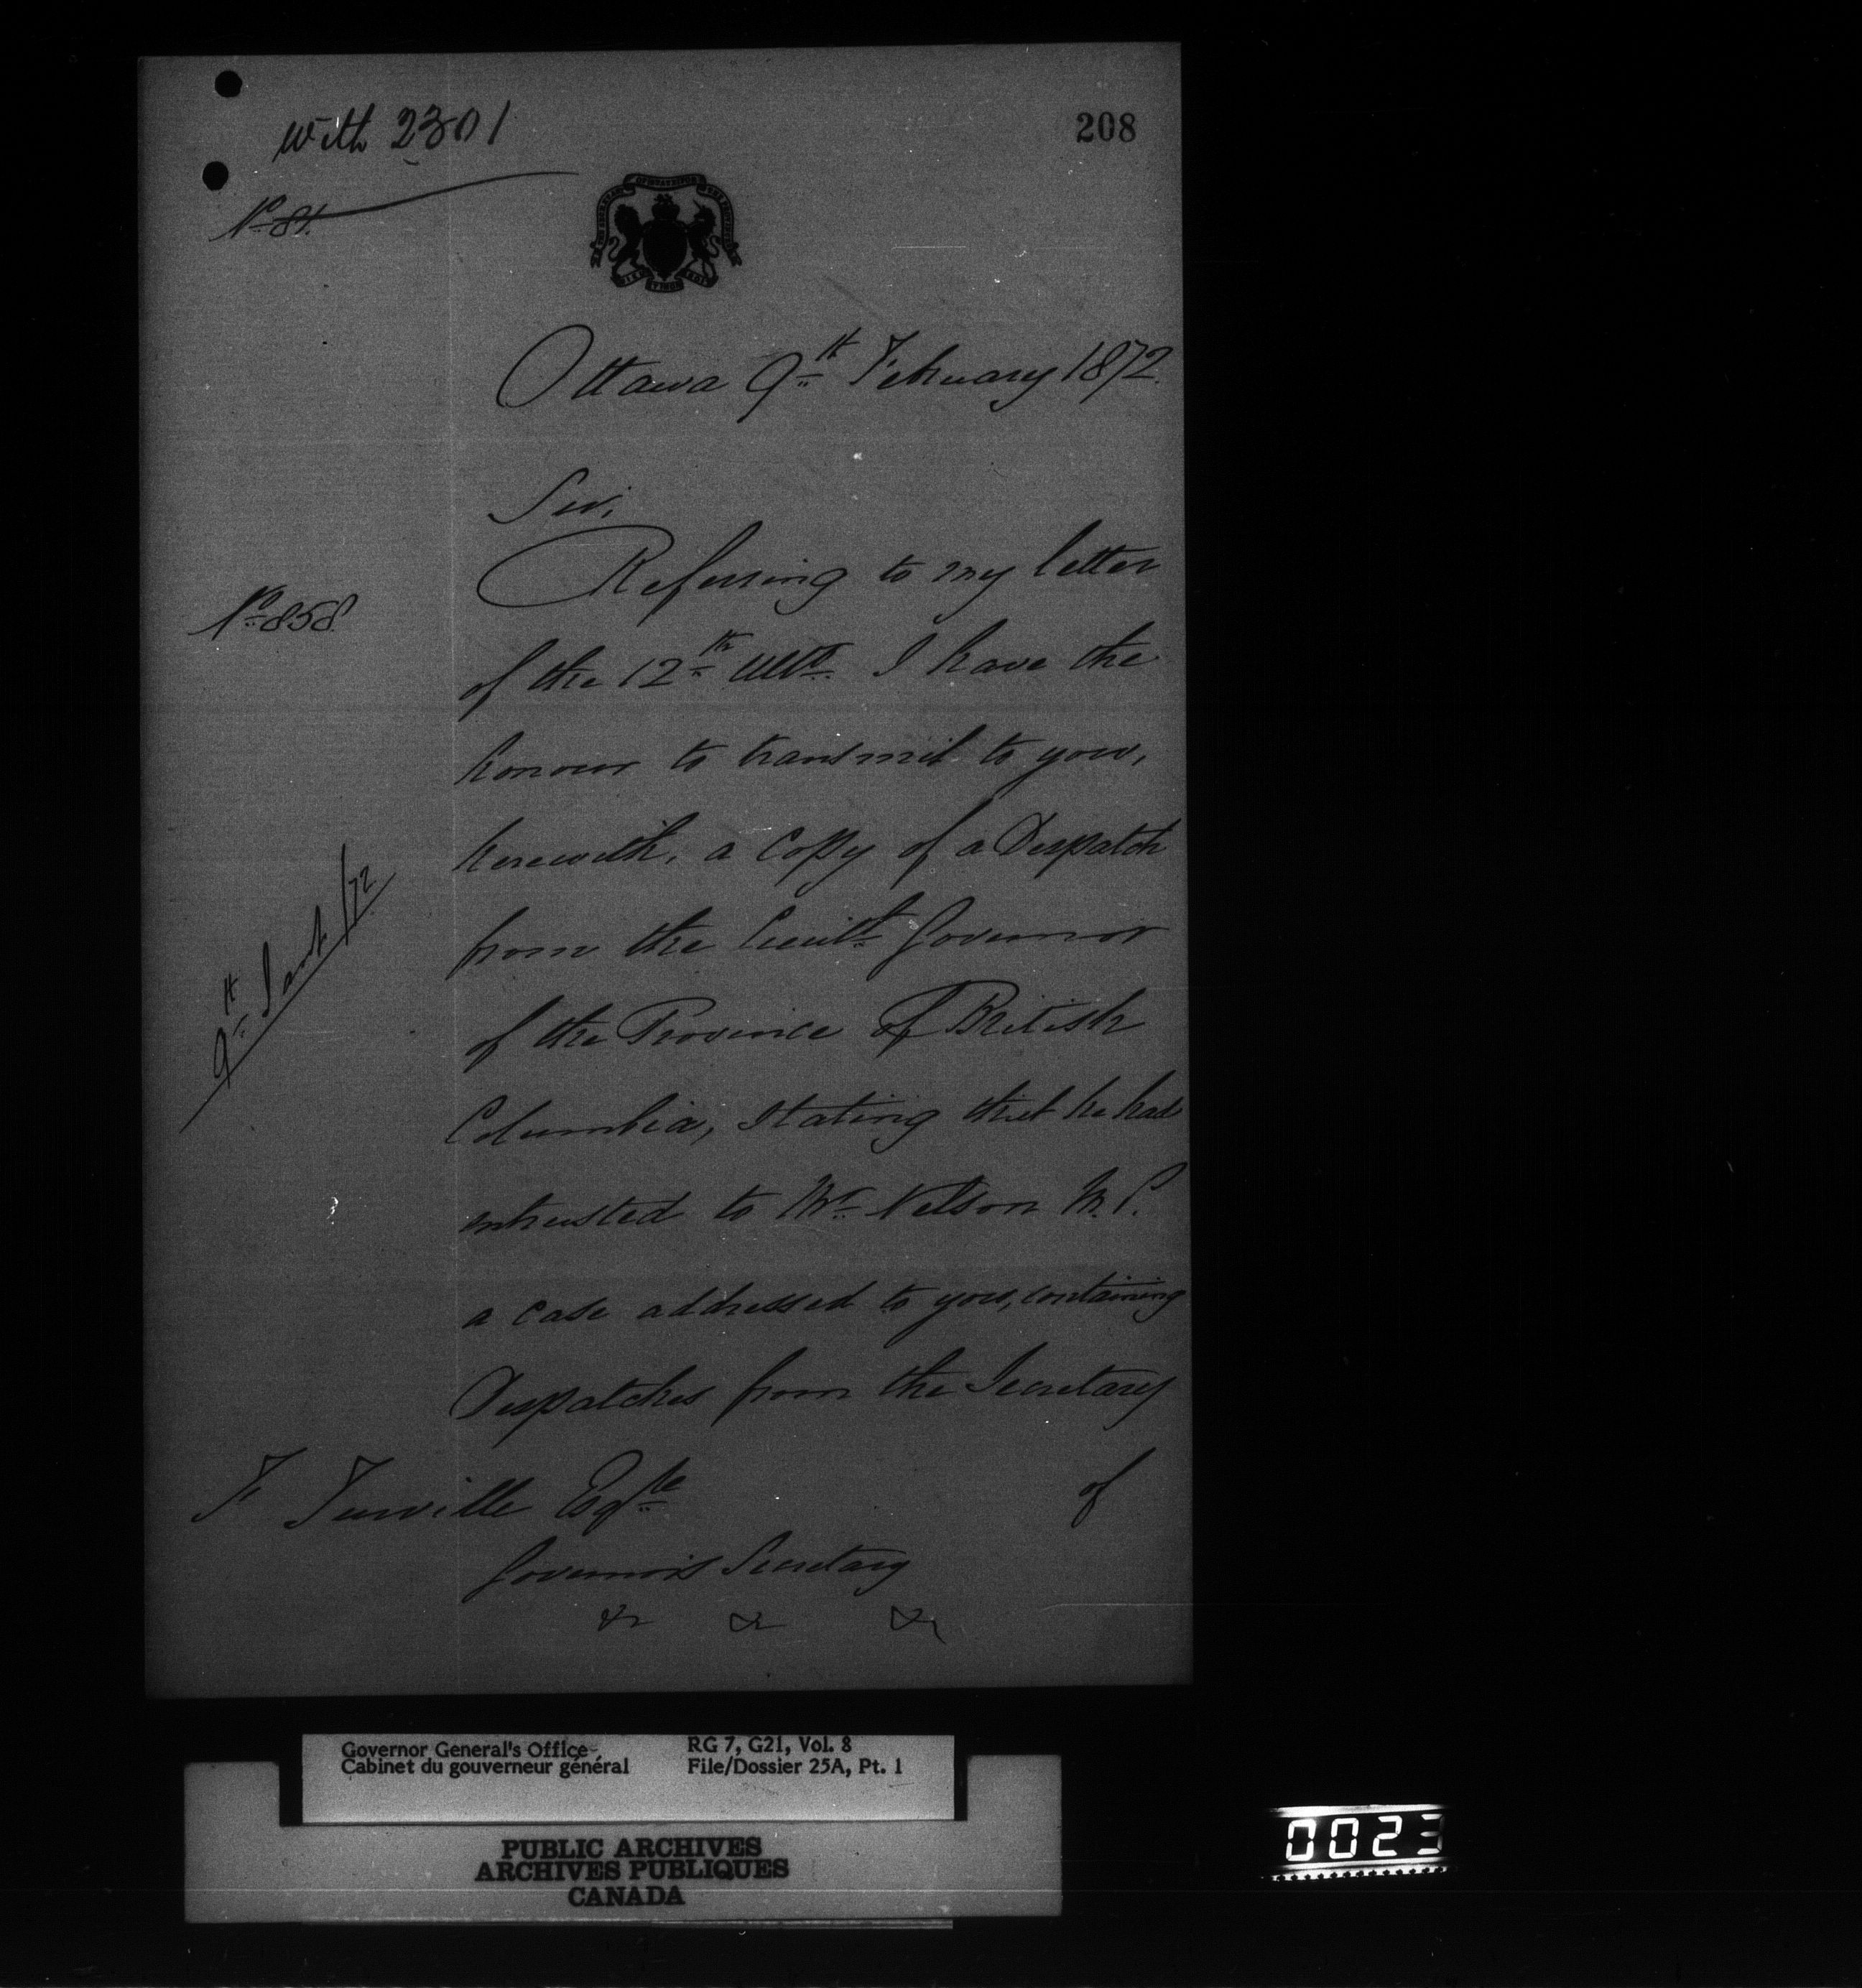 with 2301
208
No 84.
Ottawa 9th February 1872.
Sir,
Referring to my letter
No 858.
of the 12th Ulto. I have the
honour to transmit to you,
herewith, a copy of a Despatch
9th Jany /72
from the Lieutt Governor
of the Province of British
Columbia, stating that he had
entrusted to Mr Nelson M.P.
a case addressed to you, containing
Despatches from the Secretary
of
F Turville Esqre
Governor's Secretary
&c &c &c
Governor General's Office
Cabinet du gouverneur général
RG 7, G21, Vol. 8
File/Dossier 25A, Pt. 1
PUBLIC ARCHIVES
ARCHIVES PUBLIQUES
CANADA
0023